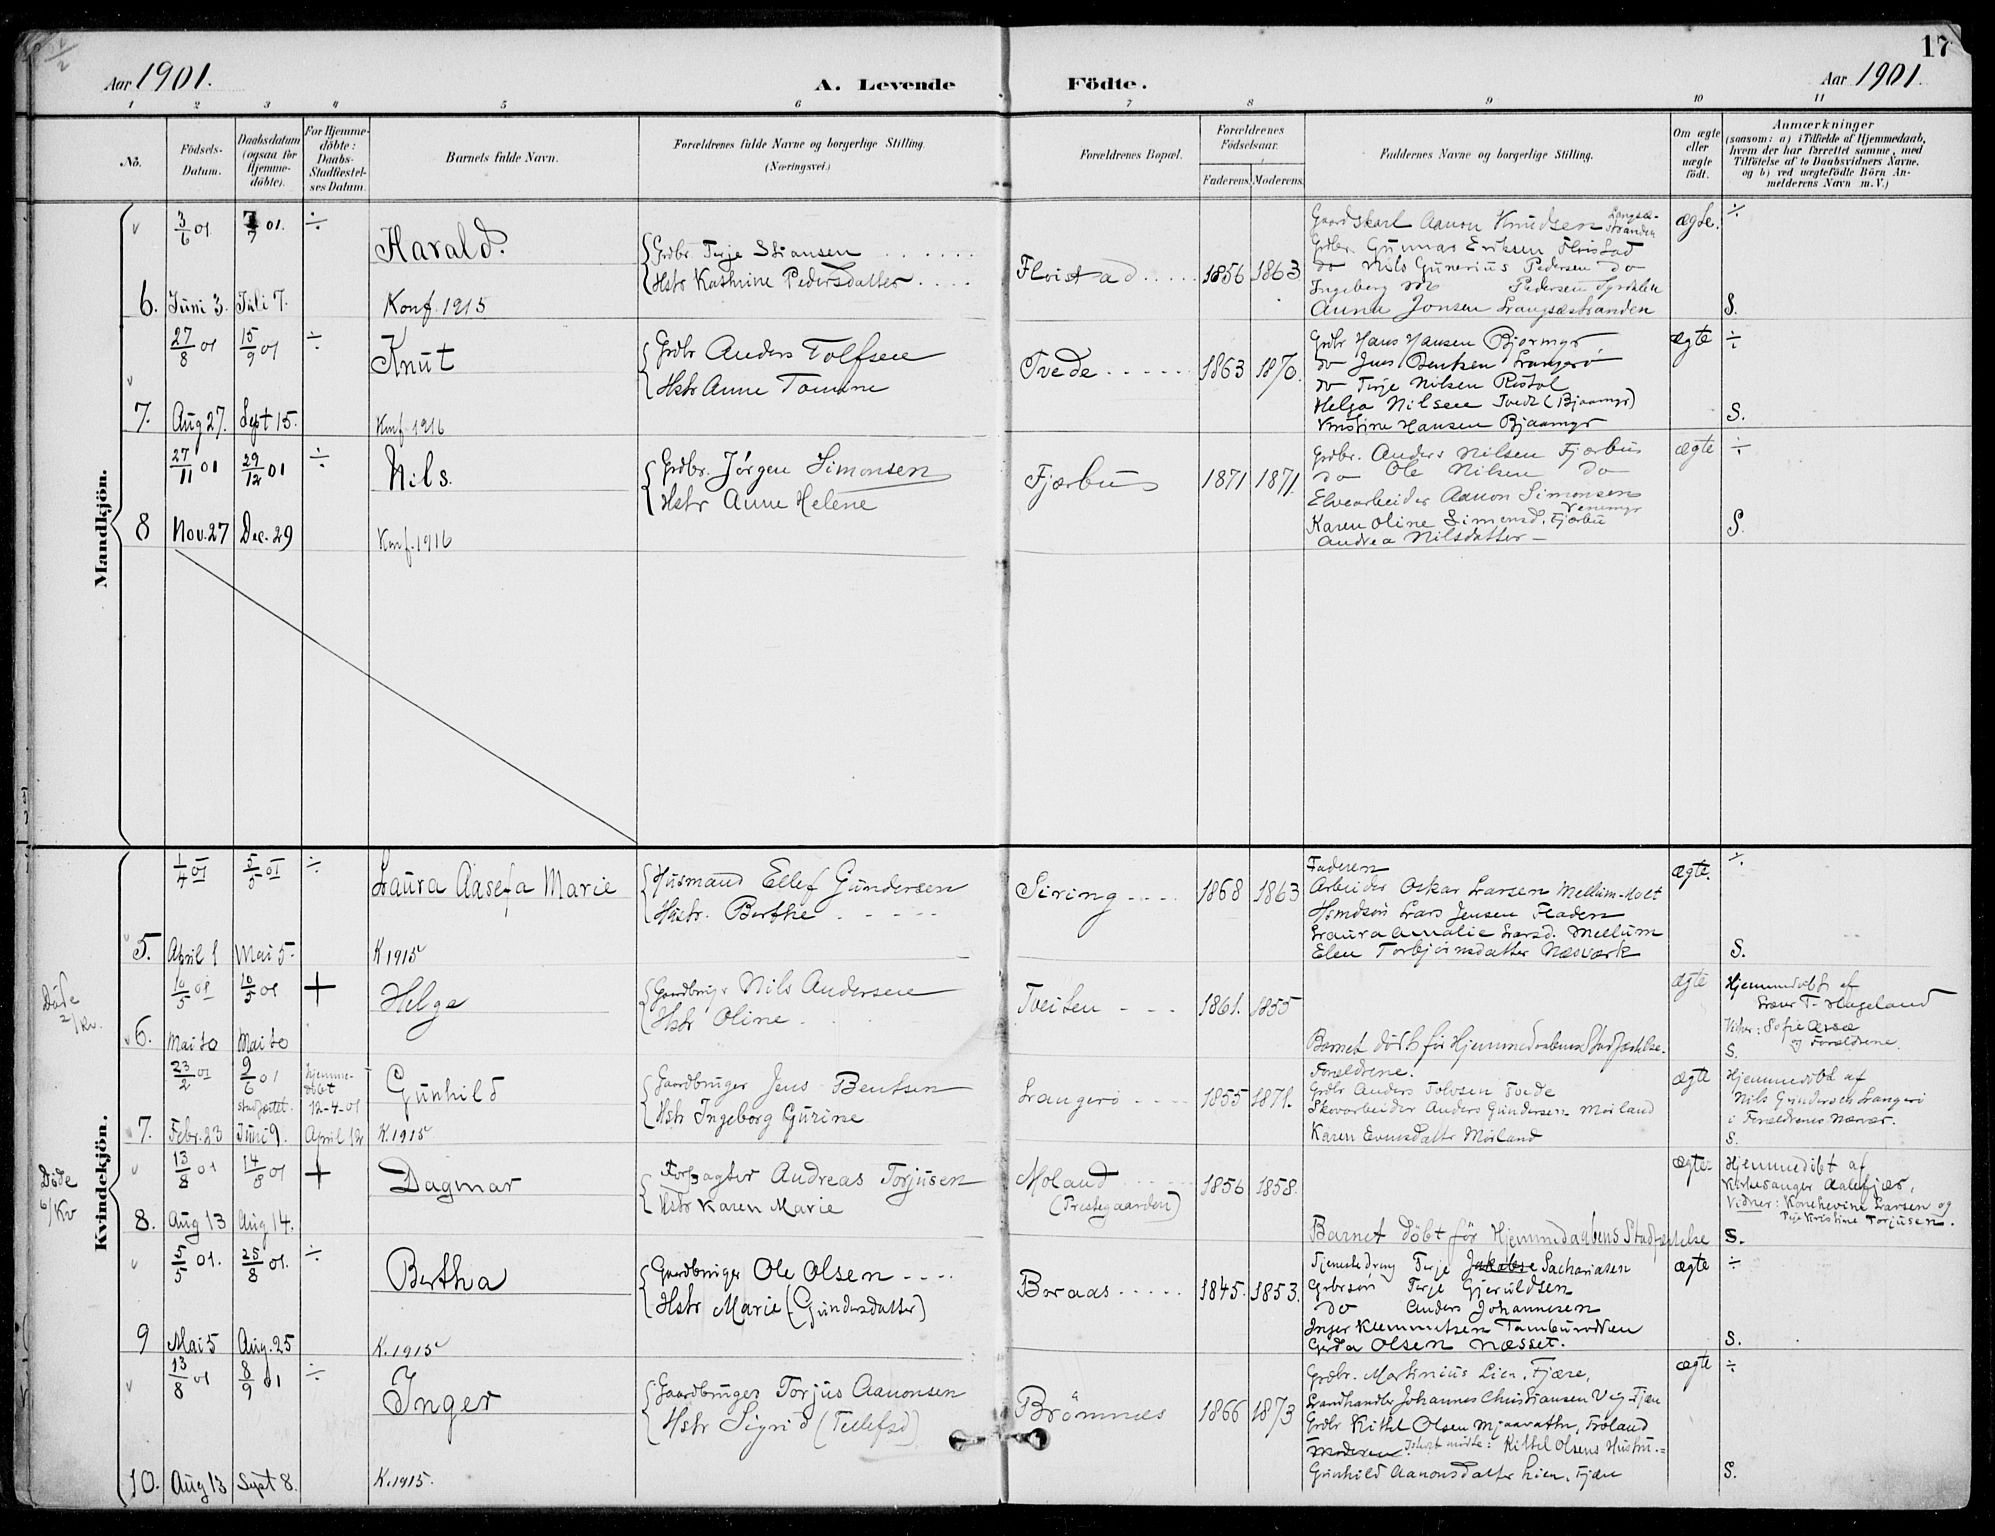 17
Aar 1901.
A. Levende Födte.
Aar 1901.
1 2 3 4 5 6 7 8 9 10 11
No.
Födsels-Datum.
Daabsdatum (ogsaa for Hjemme-döbte).
For Hjemme-döbte: Daabs-Stadfæstel-ses Datum.
Barnets fulde Navn.
Forældrenes fulde Navne og borgerlige Stilling.
(Næringsvei.)
Forældrenes Bopæl.
Forældrenes Födselsaar.
Faderens. Moderens.
Faddernes Navne og borgerlige Stilling.
Om ægte eller uægte födt.
Anmærkninger
(saasom: a) i Tilfælde af Hjemmedaab,
hvem der har forrettet samme, med
Tilföielse af to Daabsvidners Navne,
og b) ved uægtefödte Börn An-
melderens Navn m.V.)
Mandkjön.
3/6 01. 7/7 01. ÷
Harald.
Grdbr. Terje Stiansen
Hstr Kathrine Pedersdatter
Flvistad 1856 1863
Gaardskarl Aanon Knudsen Langsæ-stranden
Grdbr. Gunnar Eriksen Flvistad
do Nils Gunerius Pedersen do
Ingeborg M Pedersen
Anna Jonsen Langsæstranden
ægte. ÷
6. Juni 3. Juli 7. Konf. 1915 S.
27/8 01 15/9 01 ÷
Knut
Grdbr Anders Tolfsen
Hstr Anne Tomine
Tvede 1863 1870.
Grdbr Hans Hansen Bjormyr
do Jens Bentsen Langerö
do Terje Nilsen Ristøl
Helga Nilsen Tvede (Bjaamyr)
Kristine Hansen Bjaamyr
ægte ÷
7. Aug 27. Sept 15. Konf. 1916 S.
27/11 01 29/12 01 ÷
Nils.
Grdbr. Jørgen Simonsen
Hstr Anne Helene
Fjærbu 1871 1871.
Grdbr. Anders Nilsen Fjærbu
do Ole Nilsen do
Elvearbeider Aanon Simonsen
Venemyr
Karen Oline Simonsd. Fjærbu
Andrea Nilsdatter —
ægte ÷
8 Nov. 27 Dec. 29 Konf. 1916 S.
Kvindekjön.
1/4 01 5/5 01 ÷
Laura Aasefa Marie
Husmand Ellef Gundersen
Hstr. Berthe
Siring 1868 1863
Faderen
Arbeider Oskar Larsen Mellum-
Hsmdsön Lars Jensen Fladen
Laura Amalie Larsd. Mellum
Elen Torbjörnsdatter Næsværk
ægte. ÷
5. April 1 Mai 5 K 1915 S.
Döde 2/Kv.
10/5 01 10/5 01 +
Helga
Gaardbrugr Nils Andersen
Hstr Oline
Tveiten 1861. 1855
Barnet död för Hjemmedaabens Stadfæstelse.
ægte
Hjemmedöbt af
T. Hageland
Vidner: Sofie
og Forældrene.
6. Mai 10 Mai 10 S.
23/2 01 9/6 01 stadfæstet. hjemme-döbt 12-4-01
Gunhild
Gaardbruger Jens Bentsen
Hstr Ingeborg Gurine
Langerö 1855 1871.
Forældrene.
Grdbr Anders Tolvsen Tvede
Skovarbeider Anders Gundersen Mörland
Karen Evensdatter Mörland
ægte
Hjemmedöbt af
Nils Gundersen Langerö
i Forældrenes Nærvær.
7. Febr. 23 Juni 9. April 12 K. 1915 S.
Döde 6/Kv
13/8 01 14/8 01 +
Dagmar
Forpagter Andreas Torjusen
Hstr Karen Marie
Moland (Prestegaarden) 1856 1858.
Barnet döbt för Hjemmedaabens Stadfæstelse
ægte
Hjemmedöbt af
Kirkesanger Aalefjær,
Vidner: Konehevine Larsen og
Pige Kristine Torjusen.
8. Aug 13 Aug 14. S.
5/5 01. 25/8 01. ÷
Bertha
Gaardbruger Ole Olsen
Hstr Marie (Gundersdatter)
Boraas 1845. 1853.
Tjenestedreng Terje Jakobse Sachariasen
Grbrsön Terje Gjeruldsen
do Anders Johannesen
Inger Klemmetsen
Gerda Olsen Næsset.
ægte ÷
9 Mai 5 Aug. 25 K. 1915 S.
13/8 01 8/9 01 ÷
Inger
Gaardbruger Torjus Aanonsen
Hstr Sigrid (Tellefsd)
Brömnes 1866 1873
Grdbr. Martinius Lien, Fjære,
Landhandler Johannes Christiansen Vig, Fjære
Grdbr Kittel Olsen Mjaavatn, Froland
Moderen Kittel Olsens Hustru.
Gunhild Aanonsdatter Lien, Fjære
ægte ÷
10. Aug 13 Sept 8. K. 1915. S.